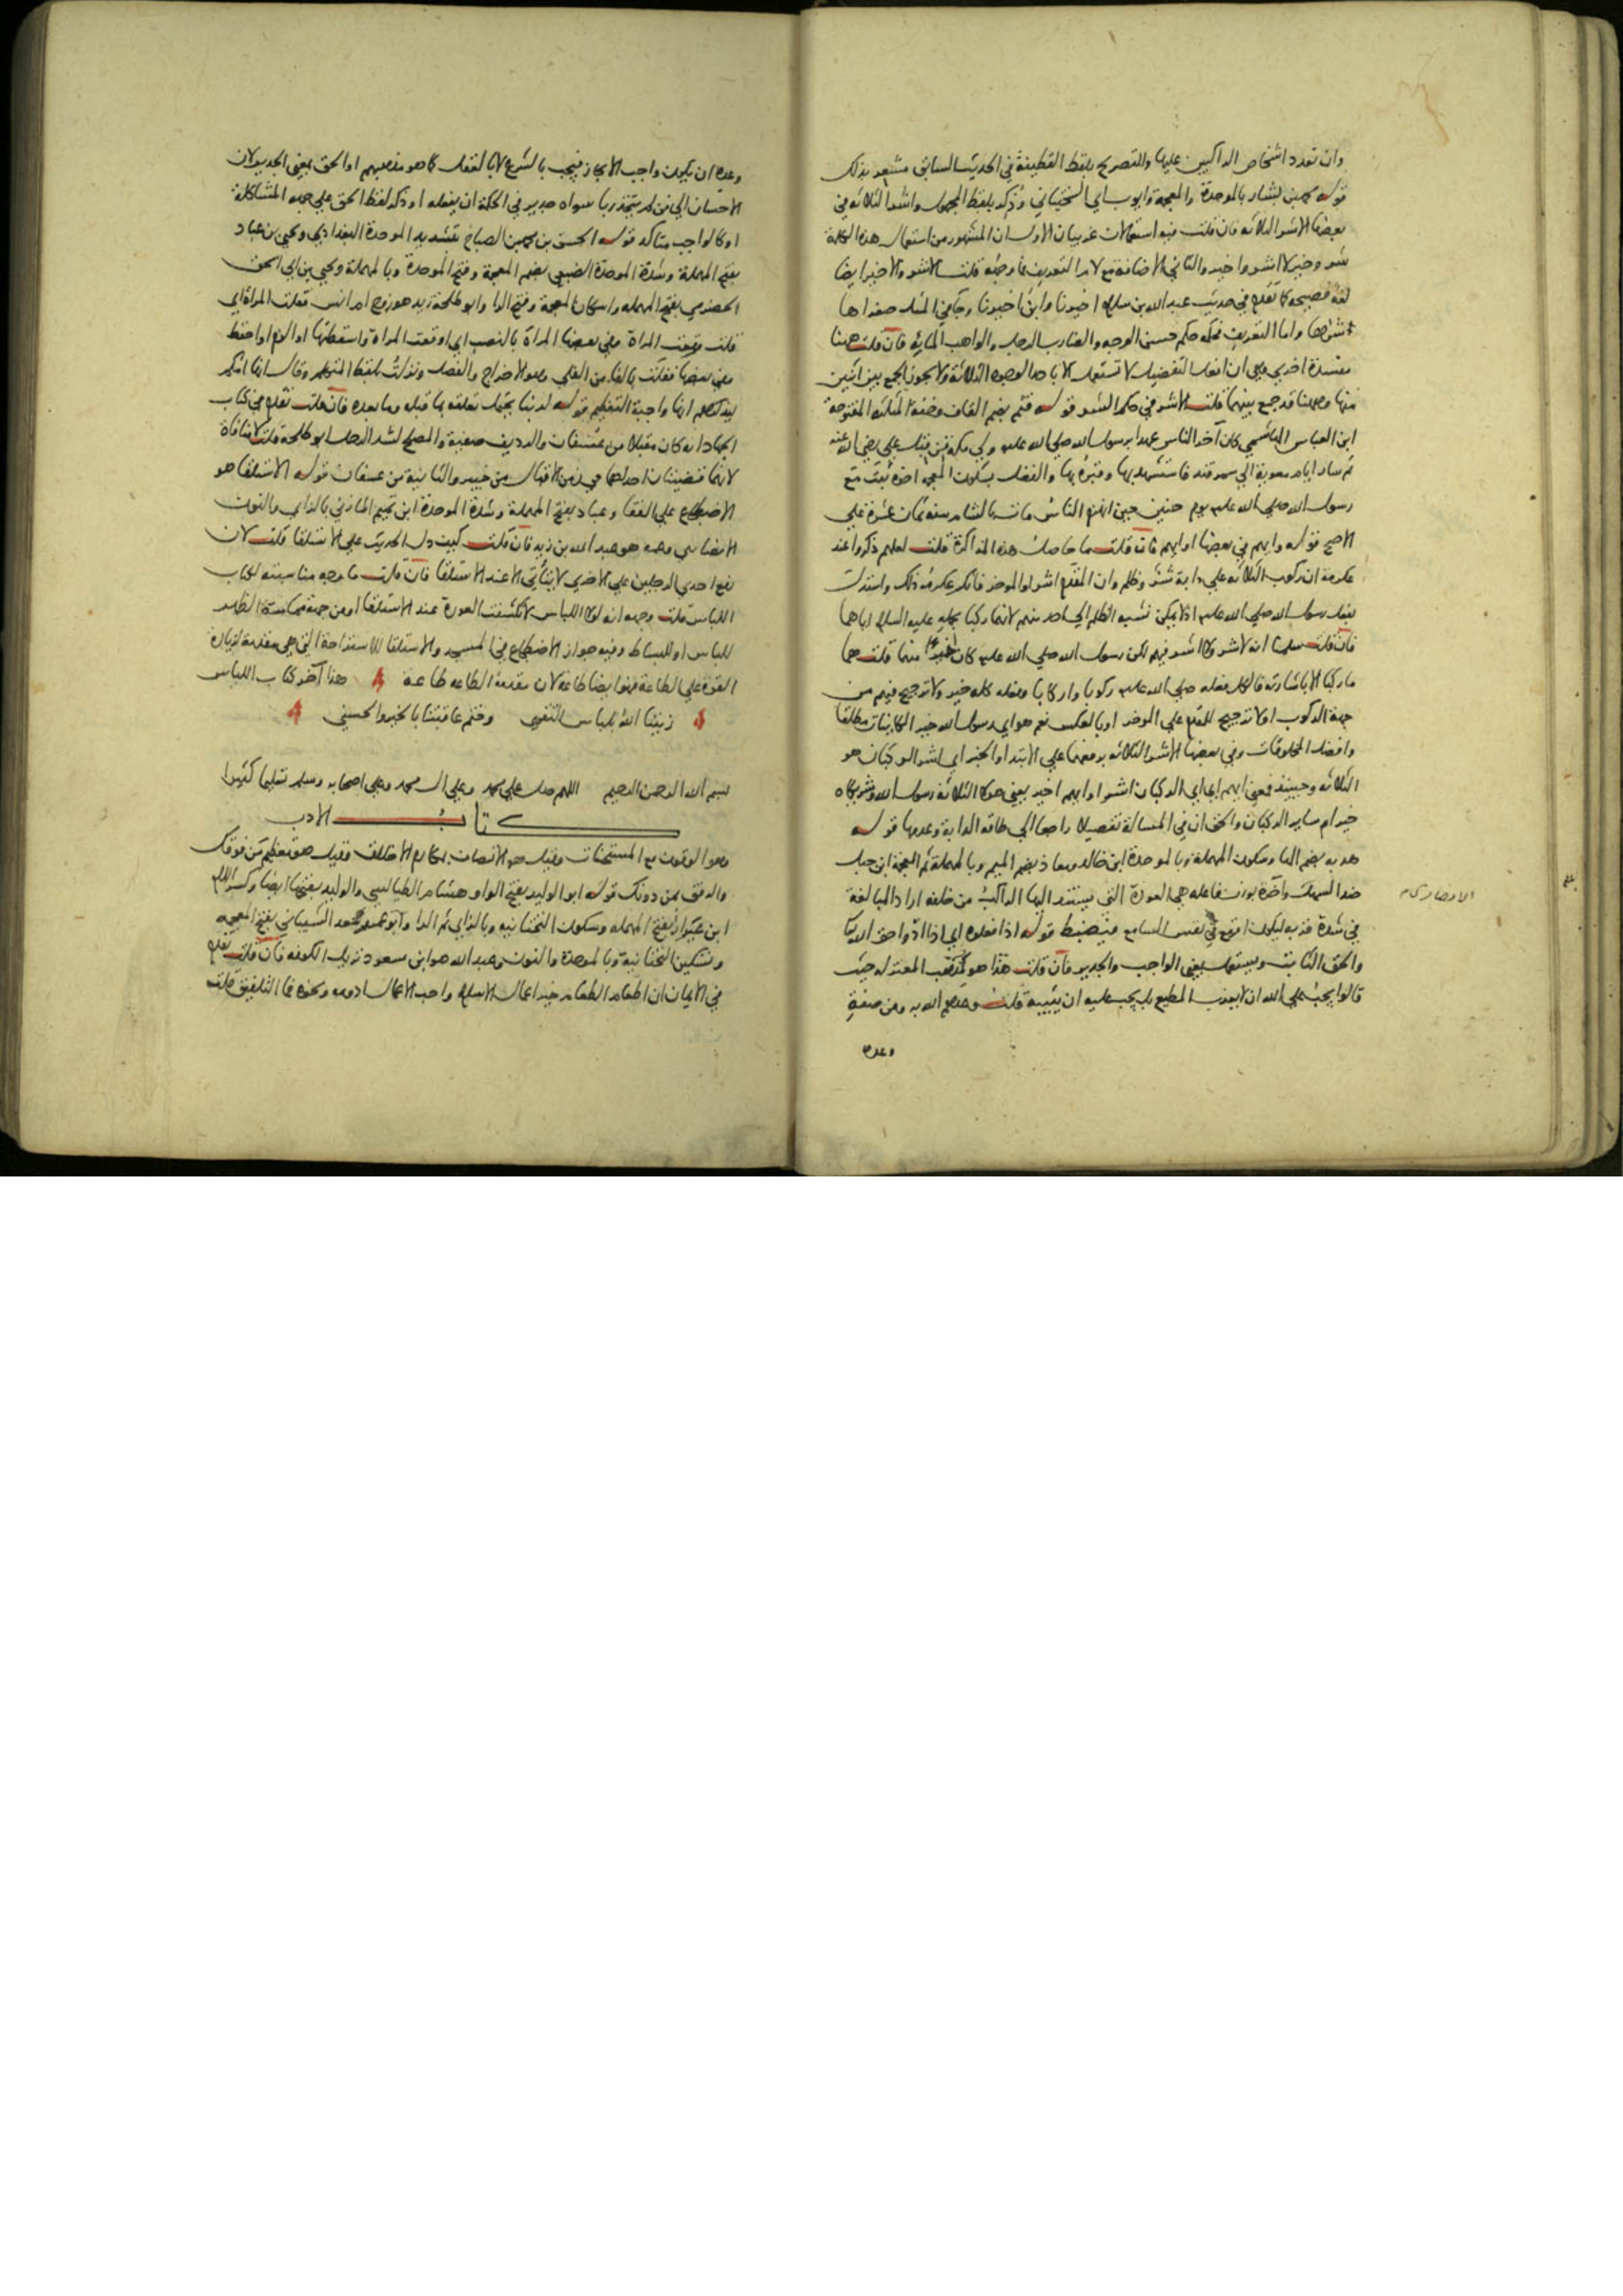 وان تعدد اشخاص الراكبين عليها والتصريح بلفظ القطيفة في الحديث السابق مشعر بذلك
قوله محمد بن بشار بالموحدة والمعجمة وايوب اي السختياني وذكر بلفظ المجهول واشر الثلاثة وفي
بعضها الاشر الثلاثة فان قلت فيه استعمالان غريبان الاول ان المشهور من استعمال هذه الكلمة
شر وخير لا اشر واخير والثاني الاضافة مع لام التعريف فما وجهه قلت الاشر والاخير ايضا
لغة فصيحة كما تقدم في حديث عبد الله بن سلام اخيرنا وابن اخيرنا وجا في المثل صغراها
اشراها واما التعريف فحكمه حكم الحسن الوجه والضارب الرجل والواهب المائة فان قلت ههنا
مفسدة اخرى وهي ان افعل التفضيل لا تستعمل الا باحد الوجوه الثلاثة ولا يجوز الجمع بين اثنين
منها وههنا قد جمع بينهما قلت الاشر في حكم الشر قوله قثم بضم القاف وخفة المثلثة المفتوحة
ابن العباس الهاشمي كان آخر الناس عهدا برسول الله صلى الله عليه وسلم ولي مكة من قبل علي رضي الله عنه
ثم سار ايام معوية الى سمرقند فاستشهد بها وقبره بها والفضل بسكون المعجمة اخوه ثبت مع
رسول الله صلى الله عليه وسلم يوم حنين حين انهزم الناس مات بالشام سنة ثمان عشرة على
الاصح قوله وايهم في بعضها او ايهم فان قلت ما حاصل هذه المذاكرة قلت لعلهم ذكروا عند
عكرمة ان ركوب الثلاثة على دابة شر وظلم وان المقدم اشر او الموخر فانكر عكرمة ذلك واستدل
بفعل رسول الله صلى الله عليه وسلم اذ لا يمكن نسبة الظلم الى احد منهم لانهما ركبا بحمله عليه السلام اياهما
فان قلت سلمنا انه لا شر ولا اشر فيهم لكن رسول الله صلى الله عليه وسلم كان اخير منهما قلت هما
ما ركبا الا باشارته فالكل بفعله صلى الله عليه وسلم ركوبا واركابا وفعله كله خير ولا ترجيح فيهم من
جهة الركوب اولا ترجيح للمقدم على الموخر او بالعكس نعم هو اي رسول الله خير الكاينات مطلقا
وافضل المخلوقات وفي بعضها الاشر الثلاثة برفعهما على الابتدا والخبر اي اشر الركبان هو
الثلاثة وحينئذ فمعنى ايهم اي اي الركبان اشر او ايهم اخير يعني هولا الثلاثة رسول الله وشريكاه
خير ام ساير الركبان والحق ان في المسالة تفصيلا راجعا الى طاقة الدابة وعدمها قوله
هدبة بضم الها وسكون المهملة وبالموحدة ابن خالد ومعاذ بضم الميم وبالمهملة ثم المعجمة ابن جبل
ضد السهل وآخرة بوزن فاعلة هي العودة التي يستند اليها الراكب من خلفه اراد المبالغة
الانصاري
في شدة قربه ليكون اوقع في نفس السامع فيضبط قوله اذا فعلوه اي اذا ادوا حق الله
والحق الثابت ويستعمل بمعنى الواجب والجدير فان قلت هذا هو مذهب المعتزلة حيث
قالوا يجب على الله ان لا يعذب المطيع بل يجب عليه ان يثيبه قلت وعدهم الله به ومن صفة
وعده
وعده ان يكون واجب الانجاز فيجب بالشرع لا بالعقل كما هو مذهبهم او الحق بمعنى الجدير لان
الاحسان الى من لم يتخذ ربا سواه جدير في الحكمة ان يفعله او ذكر لفظ الحق على جهة المشاكلة
او كالواجب متاكد قوله الحسن بن محمد بن الصباح بتشديد الموحدة البغدادي ويحيى بن عباد
بفتح المهملة وشدة الموحدة الضبعي بضم المعجمة وفتح الموحدة وبالمهملة ويحيى بن ابي اسحق
الحضرمي بفتح المهملة واسكان المعجمة وفتح الرا وابو طلحة زيد هو زوج ام انس فقلت المراة اي
قلت وقعت المراة وفي بعضها المراة بالنصب اي اوقعت المراة واسقطتها او الزم او احفظ
وفي بعضها ففلت بالفا من الفلي وهو الاخراج والفصل ونزلت بلفظ المتكلم وقال انها امكم
ليذكرهم انها واجبة التعظيم قوله لربنا يحتمل تعلقه بما قبله وما بعده فان قلت تقدم في كتاب
الجهاد انه كان مقبلا من عسفان والرديف صفية والمصلح لشد الرحل ابو طلحة قلت لا منافاة
لانهما قضيتان احداهما في زمن الاقبال من خيبر والثانية من عسفان قوله الاستلقا هو
الاضطجاع على القفا وعباد بفتح المهملة وشدة الموحدة ابن تميم المازني بالزاي والنون
الانصاري وعمه هو عبد الله بن زيد فان قلت كيف دل الحديث على الاستلقا قلت لان
رفع احدى الرجلين على الاخرى لا يتاتى الا عند الاستلقا فان قلت ما وجه مناسبته لكتاب
اللباس قلت وجهه انه لولا اللباس لانكشفت العورة عند الاستلقا او من جهة مماسة الظهر
للباس او للبساط وفيه جواز الاضطجاع في المسجد والاستلقا للاستراحة التي هي مقدمة لزيادة
القوة على الطاعة فهو ايضا طاعة لان مقدمة الطاعة طاعة هذا آخر كتاب اللباس
زيننا الله بلباس التقوى وختم عاقبتنا بالخير والحسنى
بسم الله الرحمن الرحيم اللهم صل على محمد وعلى ال محمد وعلى اصحابه وسلم تسليما كثيرا
كتاب الادب
وهو الوقوف مع المستحسنات وقيل هو الاتصاف بمكارم الاخلاق وقيل هو تعظيم من فوقك
والرفق بمن دونك قوله ابو الوليد بفتح الواو هشام الطيالسي والوليد بفتحها ايضا وكسر اللام
ابن عيزار بفتح المهملة وسكون التحتانية وبالزاي ثم الرا وابو عمرو سعد الشيباني بفتح المعجمة
وتسكين التحتانية وبالموحدة والنون وعبد الله هو ابن مسعود نزيل الكوفة فان قلت تقدم
في الايمان ان اطعام الطعام خير اعمال الاسلام واحب الاعمال ادومه ونحوه فما التلفيق قلت